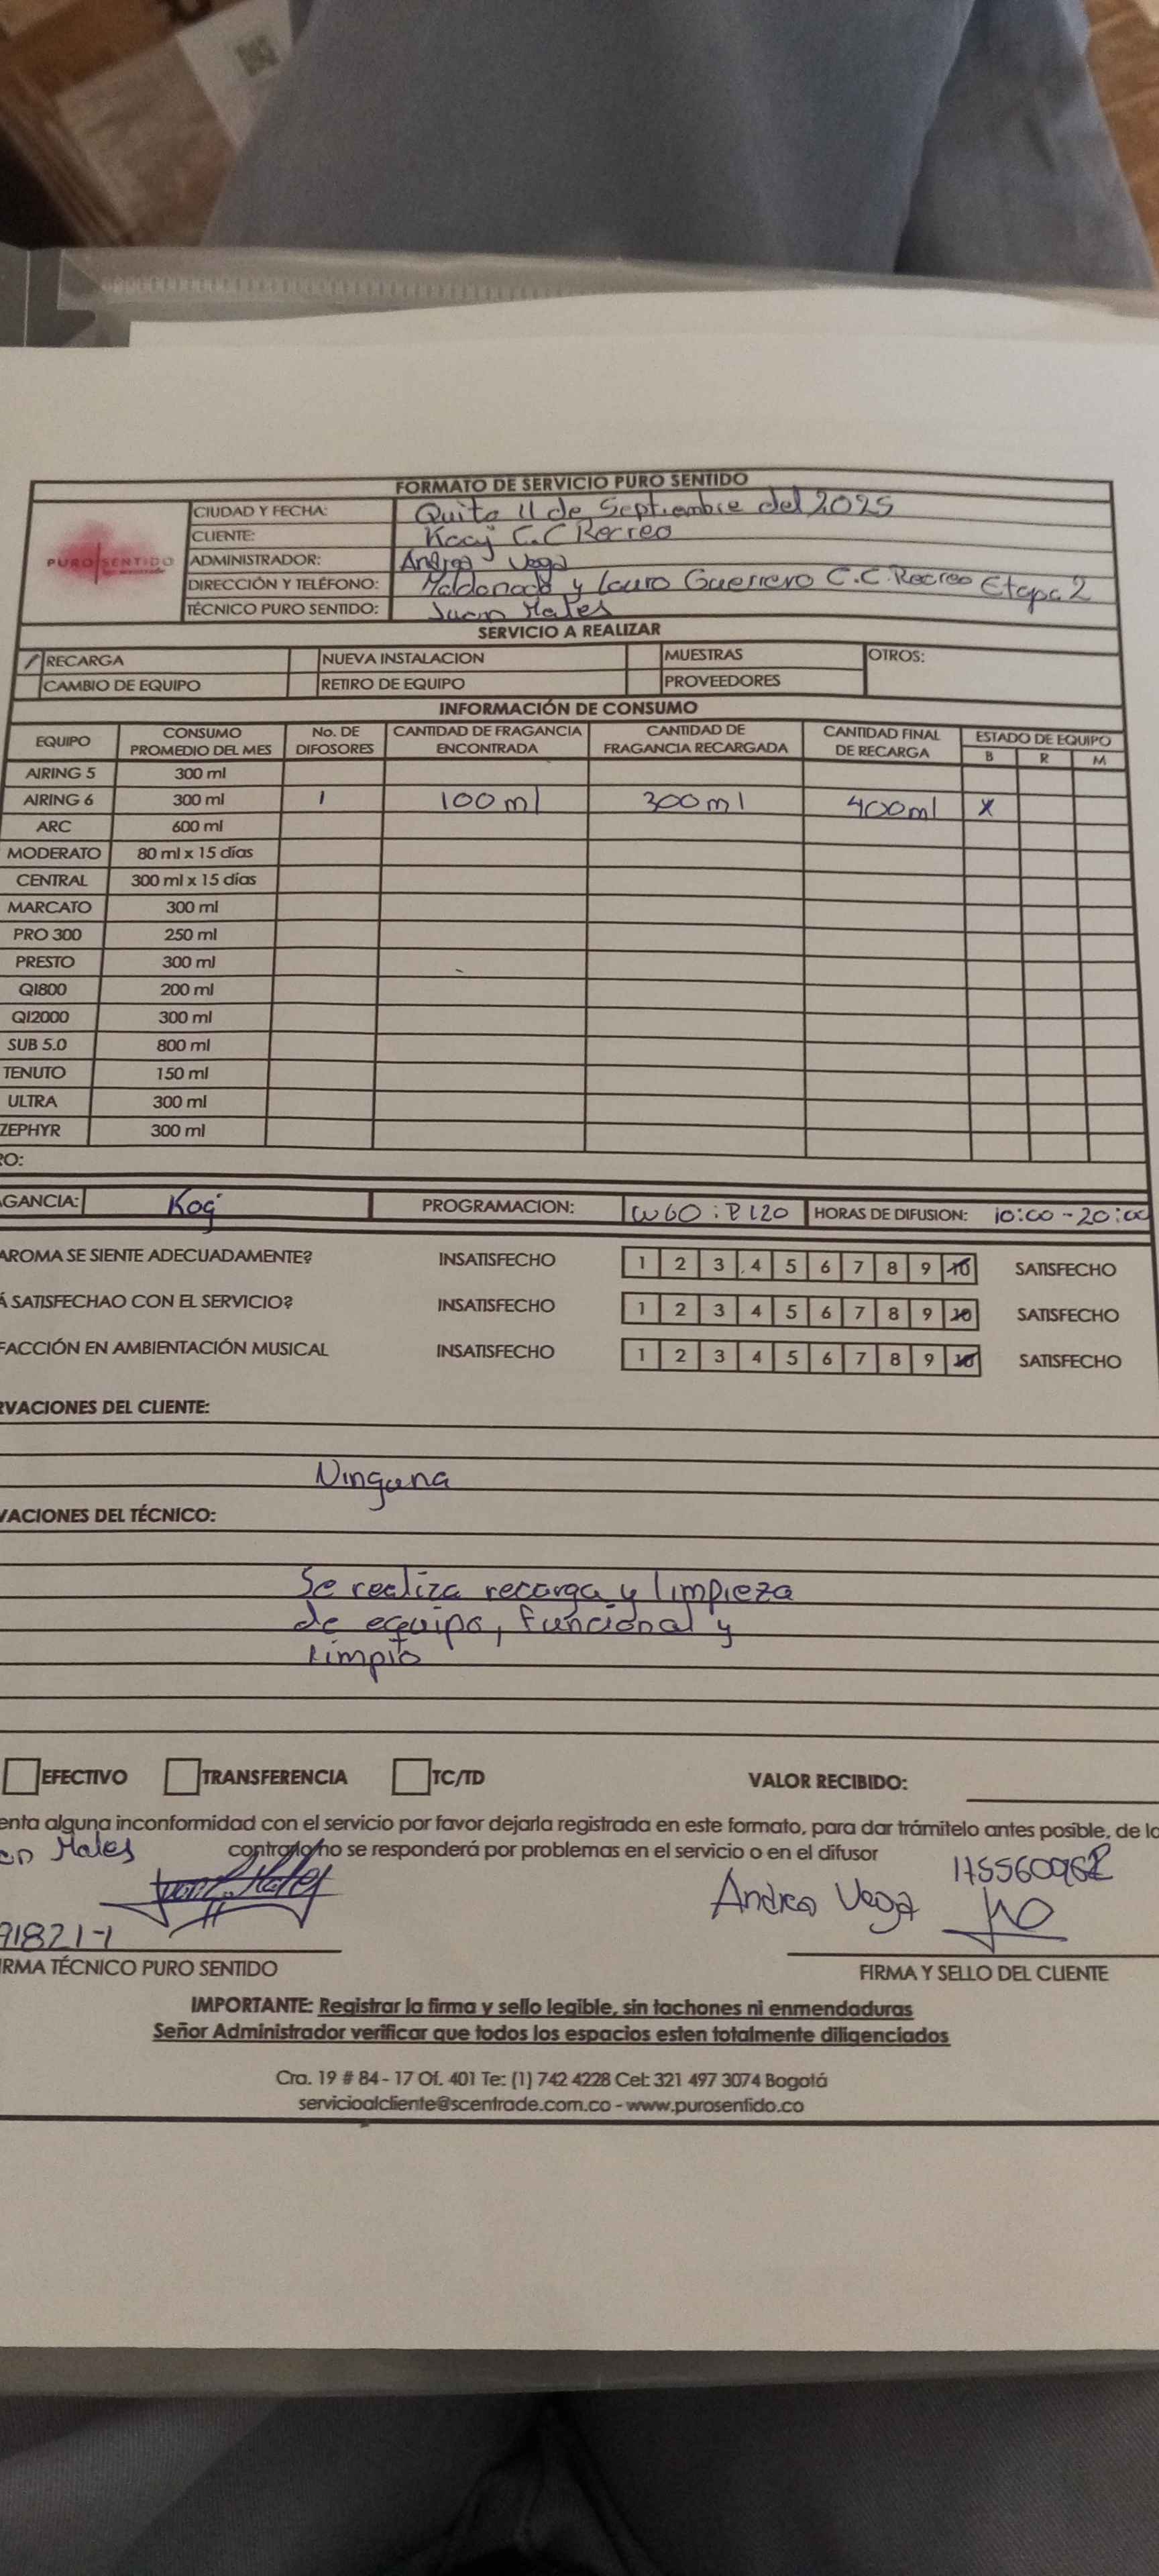 FORMATO DE SERVICIO PURO SENTIDO
PURO SENTIDO
CIUDAD Y FECHA: Quito 11 de Septiembre del 2025
CLIENTE: C.C Recreo
ADMINISTRADOR: Andrea Vega
DIRECCIÓN Y TELÉFONO: Maldonado y Lauro Guerrero C.C. Recreo Etapa 2
TÉCNICO PURO SENTIDO: Juan Males
SERVICIO A REALIZAR
/ RECARGA NUEVA INSTALACION MUESTRAS OTROS:
CAMBIO DE EQUIPO RETIRO DE EQUIPO PROVEEDORES
INFORMACIÓN DE CONSUMO
EQUIPO CONSUMO PROMEDIO DEL MES No. DE DIFOSORES CANTIDAD DE FRAGANCIA ENCONTRADA CANTIDAD DE FRAGANCIA RECARGADA CANTIDAD FINAL DE RECARGA ESTADO DE EQUIPO
B R M
AIRING 5 300 ml
AIRING 6 300 ml 1 100ml 300ml 400ml x
ARC 600 ml
MODERATO 80 ml x 15 días
CENTRAL 300 ml x 15 días
MARCATO 300 ml
PRO 300 250 ml
PRESTO 300 ml
QI800 200 ml
QI2000 300 ml
SUB 5.0 800 ml
TENUTO 150 ml
ULTRA 300 ml
ZEPHYR 300 ml
RO:
AGANCIA: PROGRAMACION: W60 : P120 HORAS DE DIFUSION: 10:00 - 20:00
AROMA SE SIENTE ADECUADAMENTE? INSATISFECHO 1 2 3 4 5 6 7 8 9 10 SATISFECHO
Á SATISFECHAO CON EL SERVICIO? INSATISFECHO 1 2 3 4 5 6 7 8 9 10 SATISFECHO
FACCIÓN EN AMBIENTACIÓN MUSICAL INSATISFECHO 1 2 3 4 5 6 7 8 9 10 SATISFECHO
RVACIONES DEL CLIENTE:
Ninguna
VACIONES DEL TÉCNICO:
Se realiza recarga y limpieza
de equipo, funcional y
limpio
EFECTIVO TRANSFERENCIA TC/TD VALOR RECIBIDO:
enta alguna inconformidad con el servicio por favor dejarla registrada en este formato, para dar trámitelo antes posible, de lo
contrario no se responderá por problemas en el servicio o en el difusor
Males
Andrea Vega
91821-1
IRMA TÉCNICO PURO SENTIDO FIRMA Y SELLO DEL CLIENTE
IMPORTANTE: Registrar la firma y sello legible, sin tachones ni enmendaduras
Señor Administrador verificar que todos los espacios esten totalmente diligenciados
Cra. 19 # 84 - 17 Of. 401 Te: (1) 742 4228 Cel: 321 497 3074 Bogotá
servicioalcliente@scentrade.com.co - www.purosentido.co